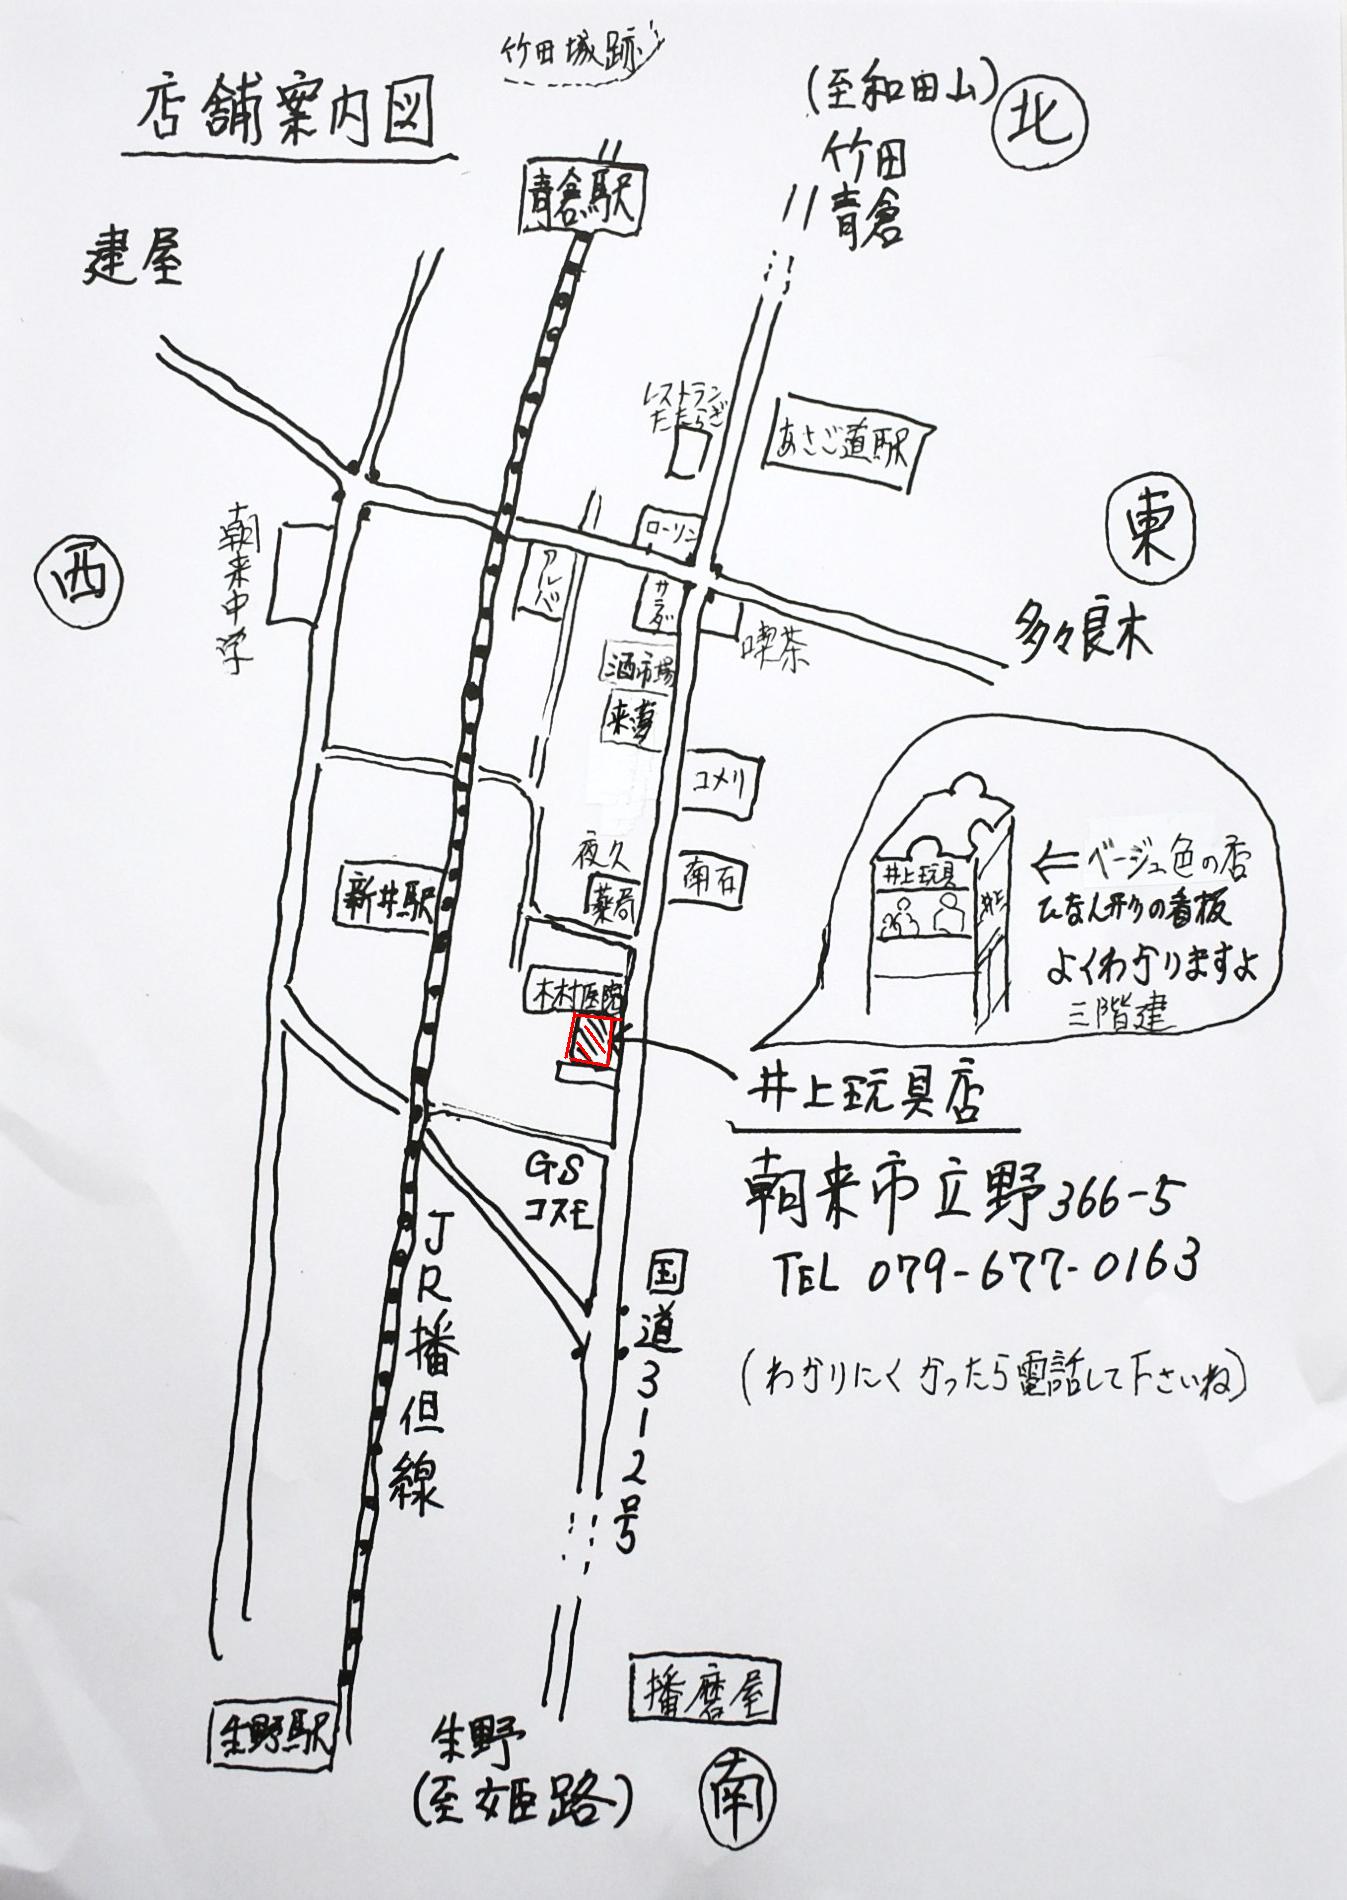 竹田城跡
店舗案内図
(至和田山)
北
竹田
青倉
青倉駅
建屋
レストラン
たたらぎ
あさご道駅
東
多々良木
西
朝来中学
ローソン
アルバ
サラダ
喫茶
酒市場
来夢
コメリ
夜久
薬局
南石
新井駅
木村医院
井上玩具
井上
←ベージュ色の店
ひな人形の看板
よくわかりますよ
三階建
井上玩具店
朝来市立野366-5
TEL 079-677-0163
(わかりにくかったら電話して下さいね)
GS
コスモ
JR播但線
国道312号
播磨屋
生野駅
生野
(至姫路)
南